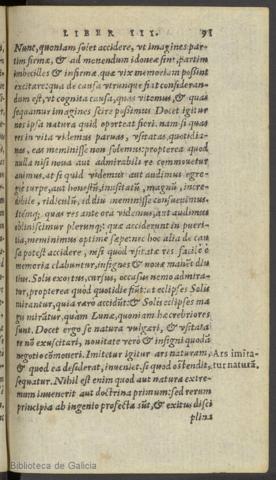 LIBER III. 91
Nunc, quoniam solet accidere, ut imagines par-
tim firmæ, & ad monendum idoneæ sint, partim
imbecilles & infirmæ, quæ vix memoriam possint
excitare: qua de causa utrunque fiat consideran-
dum est, ut cognita causa, quas vitemus, & quas
sequamur imagines scire possimus. Docet igitur
nos ipsa natura quid oporteat fieri. nam si quas
res in vita videmus parvas, usitatas, quotidia-
nas, eas meminisse non solemus: propterea quod
nulla nisi nova aut admirabili re commovetur
animus. at si quid videmus aut audimus egre-
gie turpe, aut honestū, inusitatū, magnū, incre-
dibile, ridiculū, id diu meminisse consuevimus.
Itemq; quas res ante ora videmus, aut audimus
obliviscimur plerunq; quæ acciderunt in pueri-
tia, meminimus optime sæpe: nec hoc alia de cau
sa potest accidere, nisi quod usitatæ res facile è
memoria elabuntur, insignes & novæ manēt diu
tius. Solis exortus, cursus, occasus nemo admira-
tur, propterea quòd quotidie fiūt: at eclipses Solis
mirantur, quia rarò accidūt: & Solis eclipses ma
gis mirātur, quàm Lunæ, quoniam hæ crebriores
sunt. Docet ergo se natura vulgari, & usitata
re nō exuscitari, novitate verò & insigni quodā
negotio cōmoveri. Imitetur igitur ars naturam, Ars imita-
& quod ea desiderat, inveniet: si quod ostendit, tur naturā.
sequatur. Nihil est enim quod aut natura extre-
mum invenerit aut doctrina primum: sed rerum
principia ab ingenio profecta sūt, & exitus disci
plina
Biblioteca de Galicia